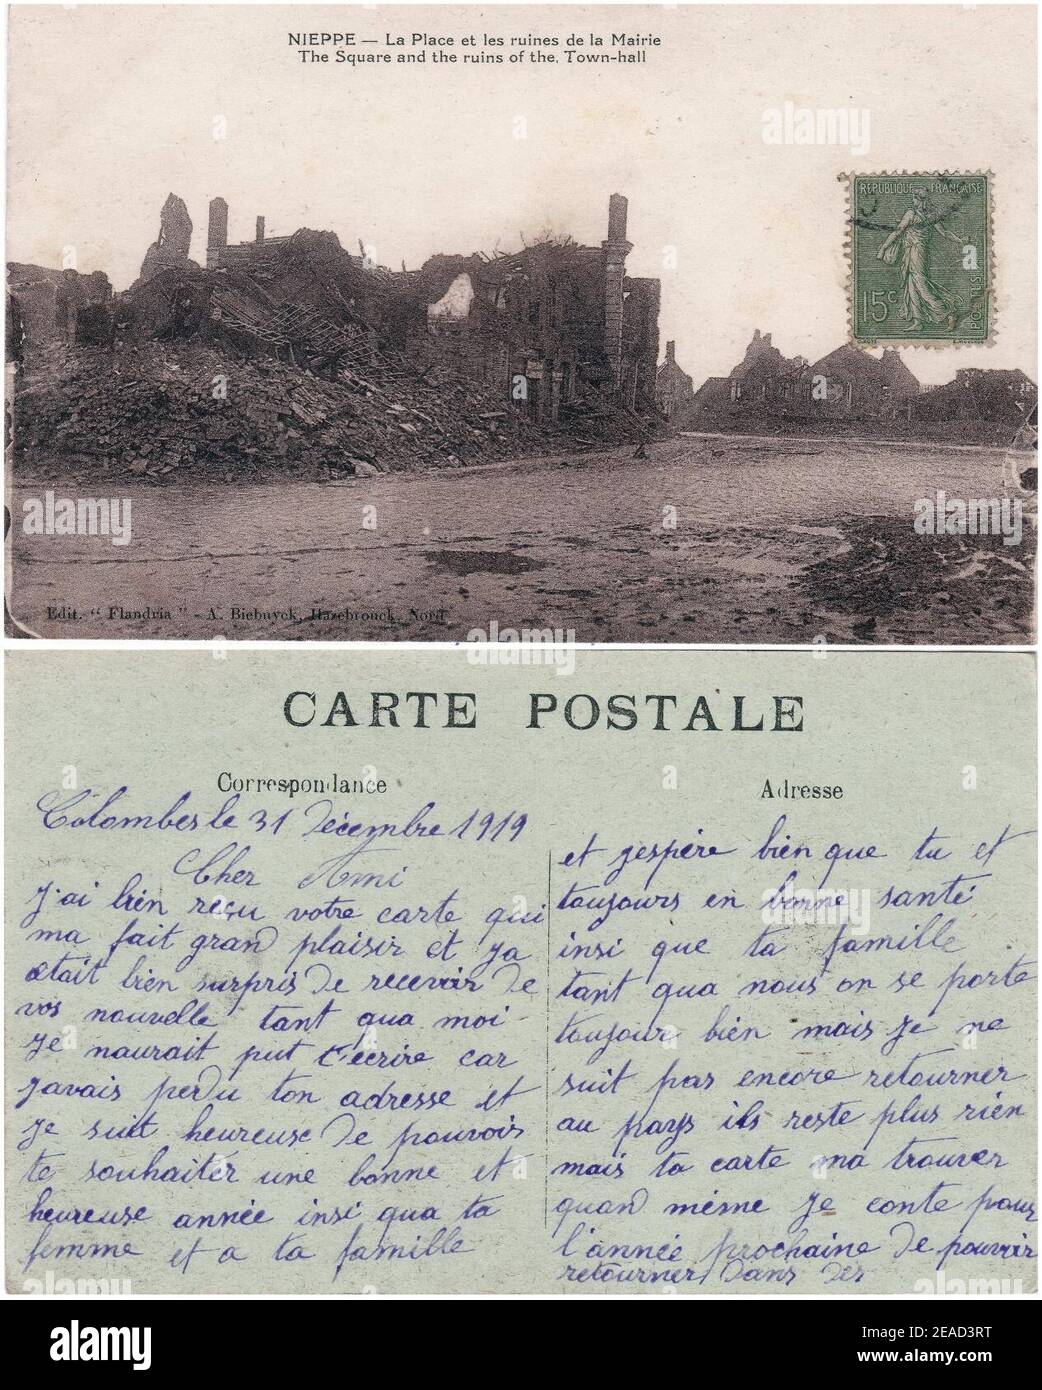 NIEPPE — La Place et les ruines de la Mairie
The Square and the ruins of the. Town-hall
RÉPUBLIQUE FRANÇAISE
15c
POSTES
Edit. "Flandria" - A. Biebuyck, Hazebrouck, Nord
CARTE POSTALE
Correspondance
Colombes le 31 Décembre 1919
Cher Ami
J'ai bien reçu votre carte qui
ma fait grand plaisir et ja
était bien surpris de recevoir de
vos nouvelle tant qua moi
je naurait put t'écrire car
javais perdu ton adresse et
je suit heureuse de pouvois
te souhaiter une bonne et
heureuse année insi qua ta
femme et a ta famille
Adresse
et jespère bien que tu et
toujours en bonne santé
insi que ta famille
tant qua nous on se porte
toujour bien mais je ne
suit pas encore retourner
au pays ils reste plus rien
mais ta carte ma trouver
quand même je conte pour
l'année prochaine de pouvoir
retourner dans des
alamy
Image ID: 2EAD3RT
www.alamy.com